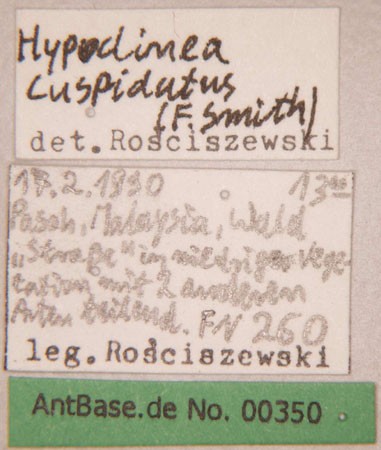 Hypoclinea
cuspidatus
(F. Smith)
det. Rosciszewski
17.2.1990 13⁰⁰
Pasoh, Malaysia, Wald
„Straße" in niedriger Vege-
tation mit 2 anderen
Arten teilend. FN 260
leg. Rosciszewski
AntBase.de No. 00350